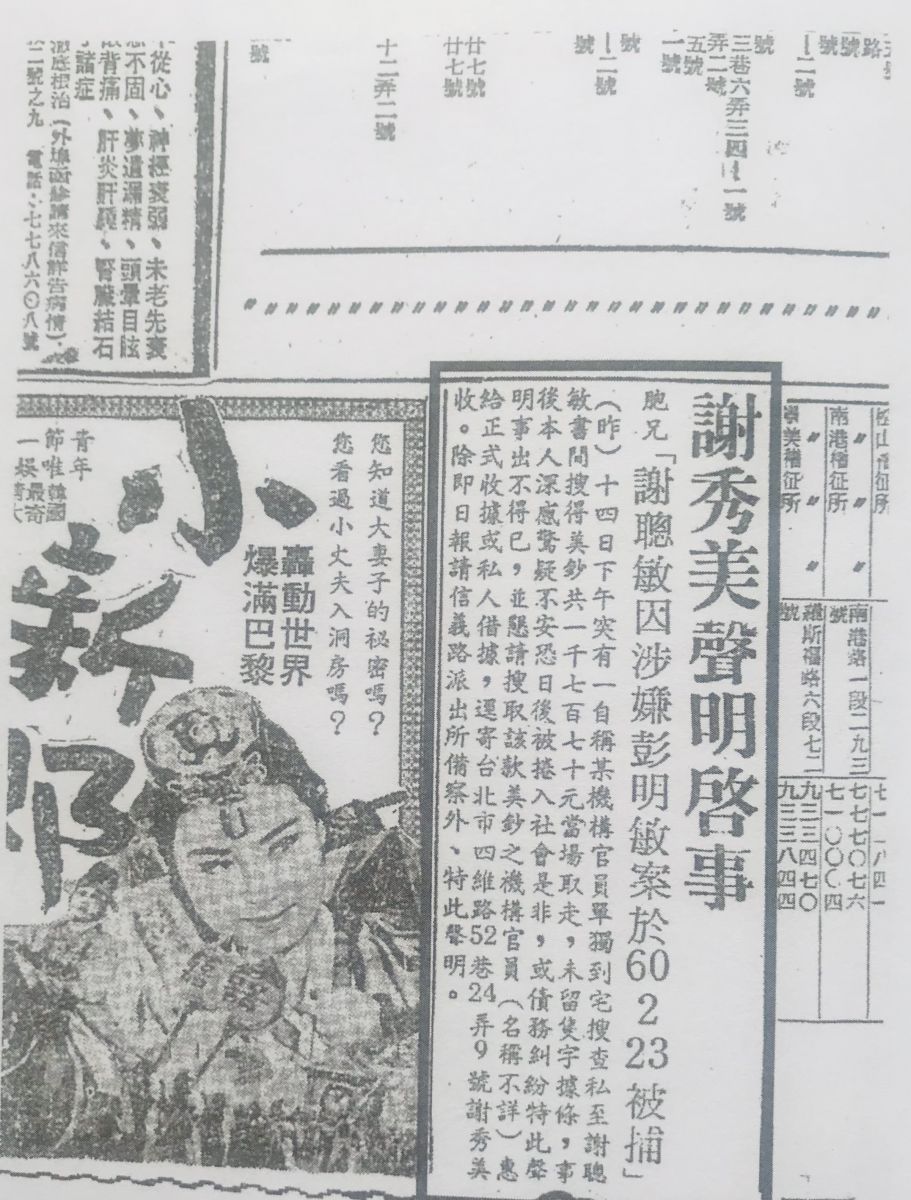 號
三巷六弄三四—一號
弄二號
五號
一號
號
—二號
廿七號
廿七號
十二弄二號
號
不從心、神經衰弱、未老先衰
不固、夢遺漏精、頭暈目眩
背痛、肝炎肝腫、腎臟結石
諸症
澈底根治(外埠函診請來信詳告病情)
二號之九 電話:七七八六〇八號
松山稽征所
南港稽征所
景美稽征所
南港路一段二九三
號
羅斯福路六段七二
號
七七七〇七六
七一〇〇〇四
九三三四七〇
九三三八四四
謝秀美聲明啓事
胞兄「謝聰敏因涉嫌彭明敏案於60 2 23被捕」
(昨)十四日下午突有一自稱某機構官員單獨到宅搜查私至謝聰
敏書間搜得美鈔共一千七百七十元當場取走,未留隻字據條,事
後本人深感驚疑不安恐日後被捲入社會是非,或債務糾紛特此聲
明事出不得已,並懇請搜取該款美鈔之機構官員(名稱不詳)惠
給正式收據或私人借據,逕寄台北市四維路52巷24弄9號謝秀美
收。除即日報請信義路派出所備察外、特此聲明。
您知道大妻子的秘密嗎?
您看過小丈夫入洞房嗎?
轟動世界
爆滿巴黎
小新郎
青年
節唯韓國
一最奇